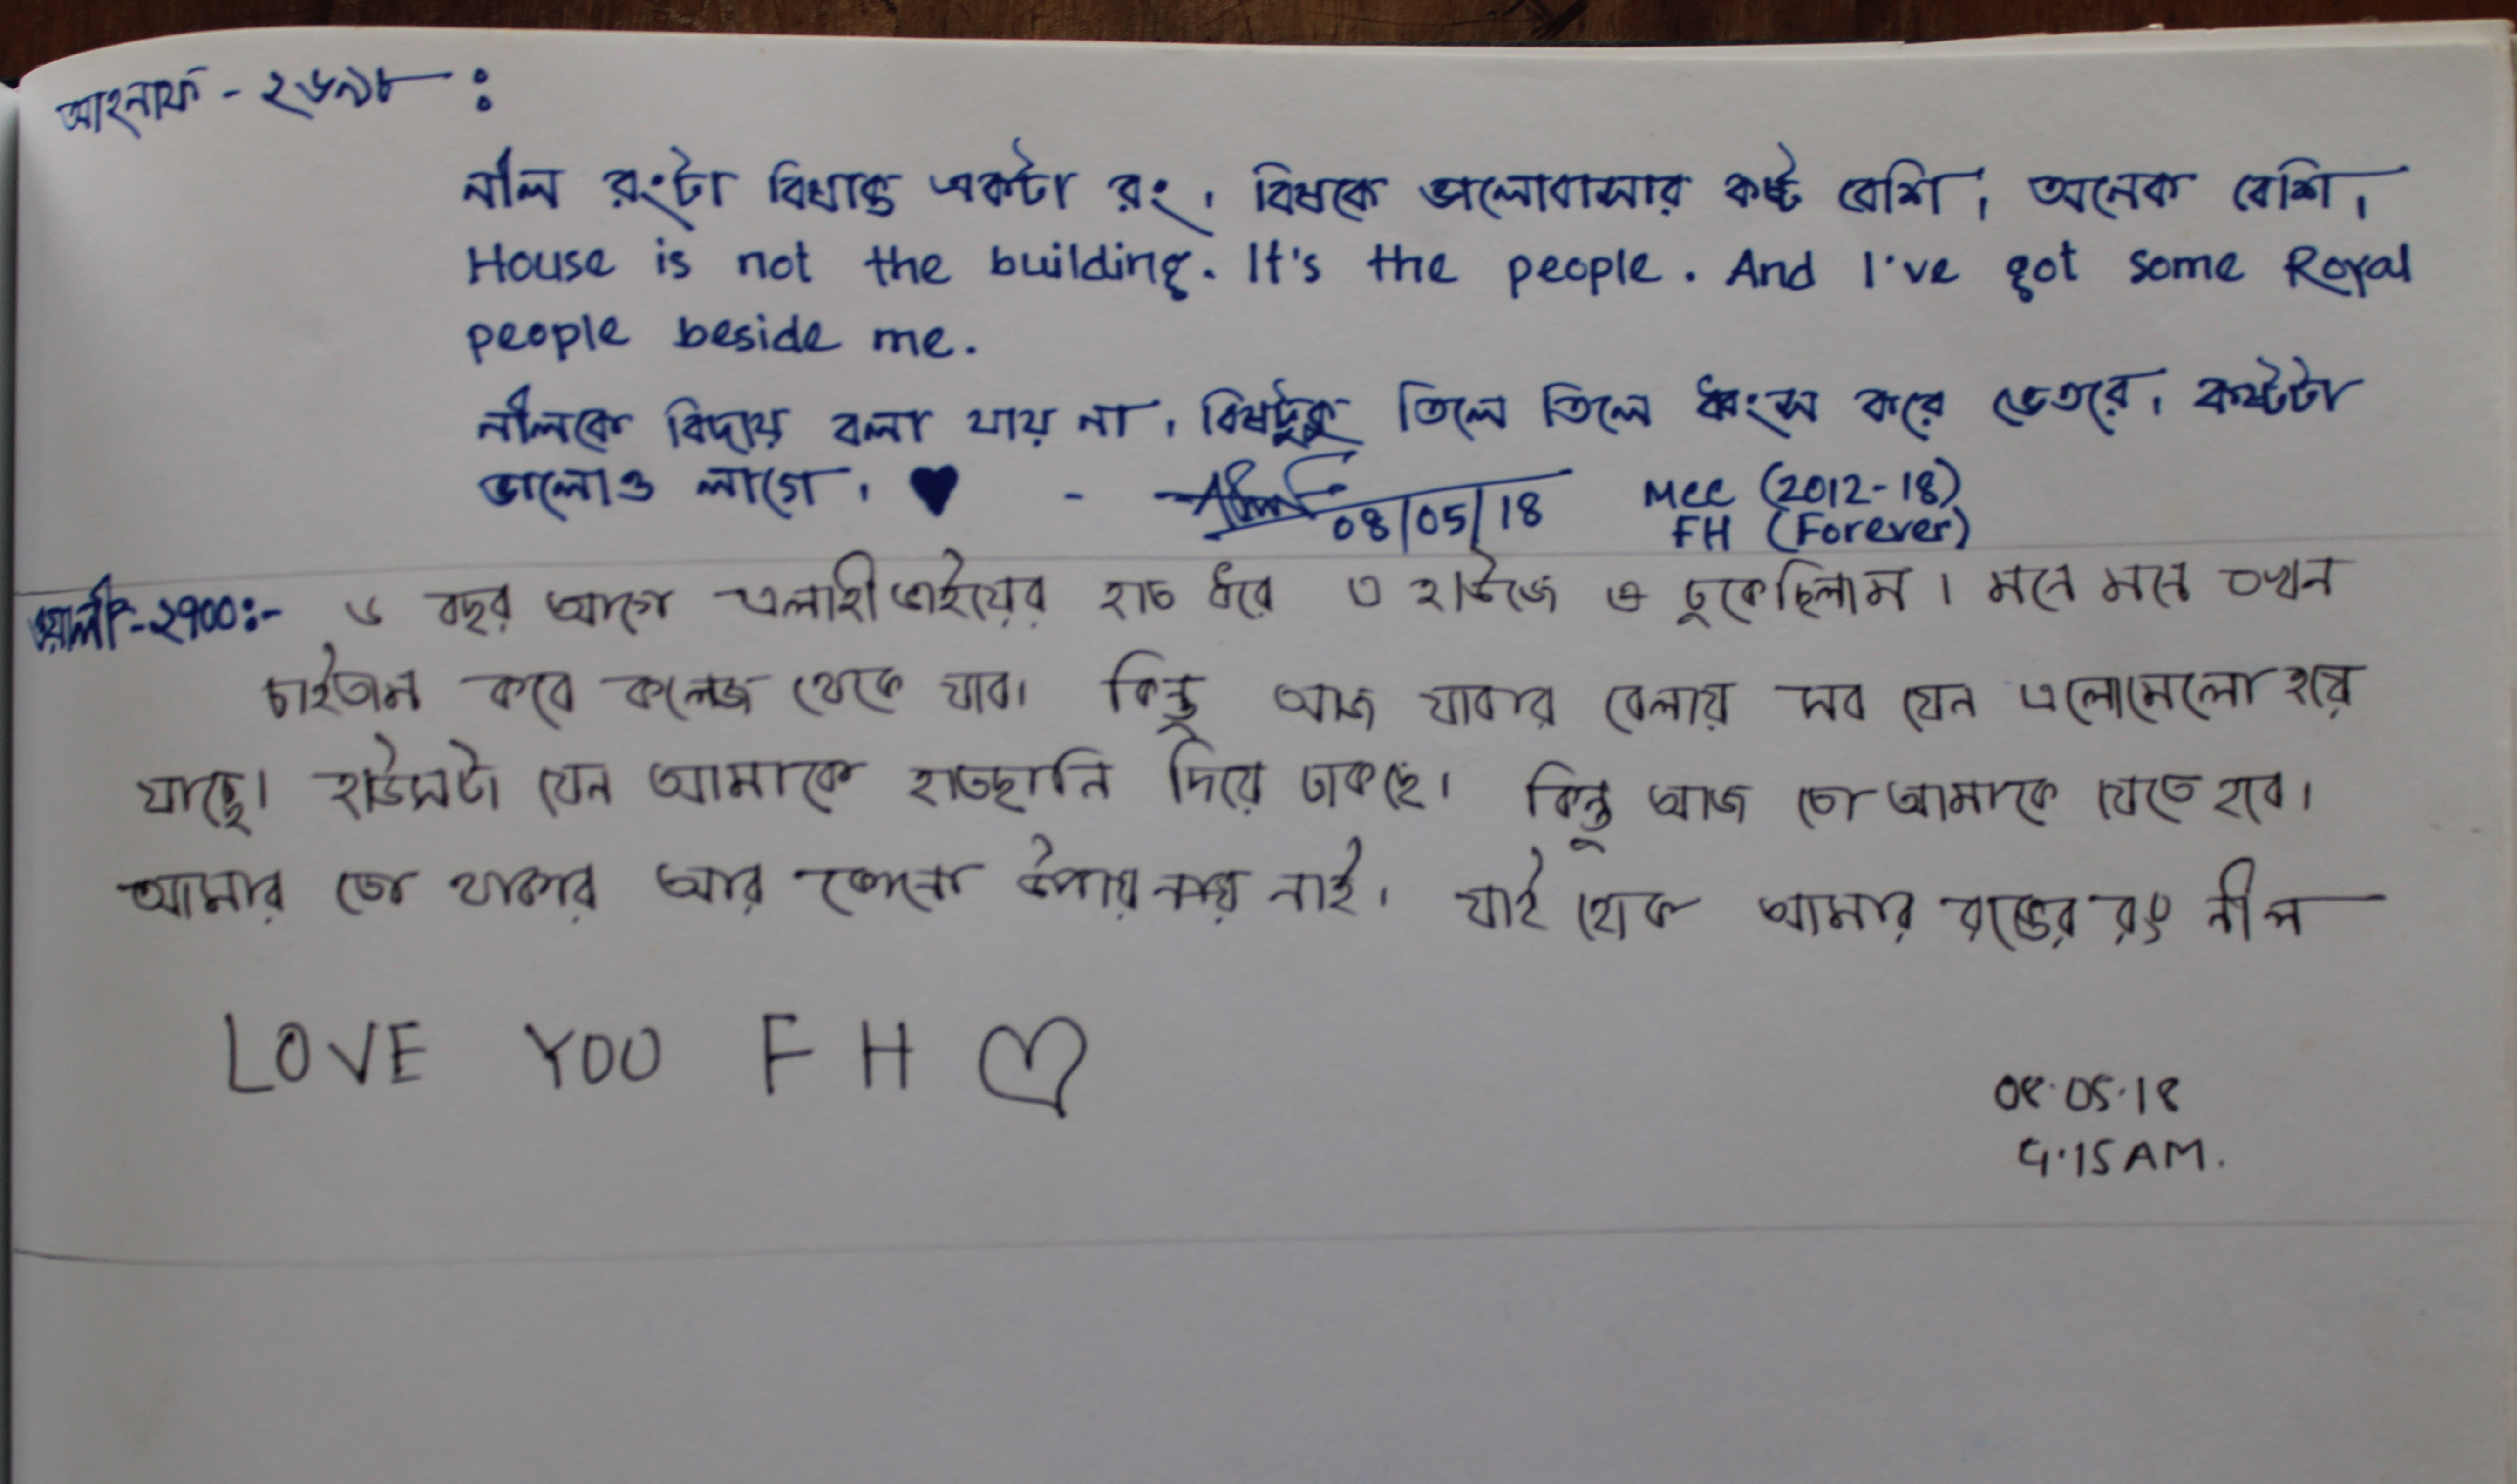 আহনাফ - ২৬৯৮ :
নীল রংটা বিষাক্ত একটা রং। বিষকে ভালোবাসার কষ্ট বেশি, অনেক বেশি।
House is not the building. It's the people. And I've got some Royal
people beside me.
নীলকে বিদায় বলা যায় না। বিষটুকু তিলে তিলে ধ্বংস করে ভেতরে। কষ্টটা
ভালোও লাগে। ♥ -
08/05/18
MCC (2012-18)
FH (Forever)
ওয়ালী-২৭০০:- ৬ বছর আগে এলাহী ভাইয়ের হাত ধরে এ হাউজে ঢুকেছিলাম। মনে মনে তখন
চাইতাম কবে কলেজ থেকে যাব। কিন্তু আজ যাবার বেলায় সব যেন এলোমেলো হয়ে
যাচ্ছে। হাউসটা যেন আমাকে হাতছানি দিয়ে ডাকছে। কিন্তু আজ তো আমাকে যেতে হবে।
আমার তো থাকার আর কোনো উপায় নাই। যাই হোক আমার রক্তের রং নীল
LOVE YOU F H ♡
08.05.18
4.15 AM.